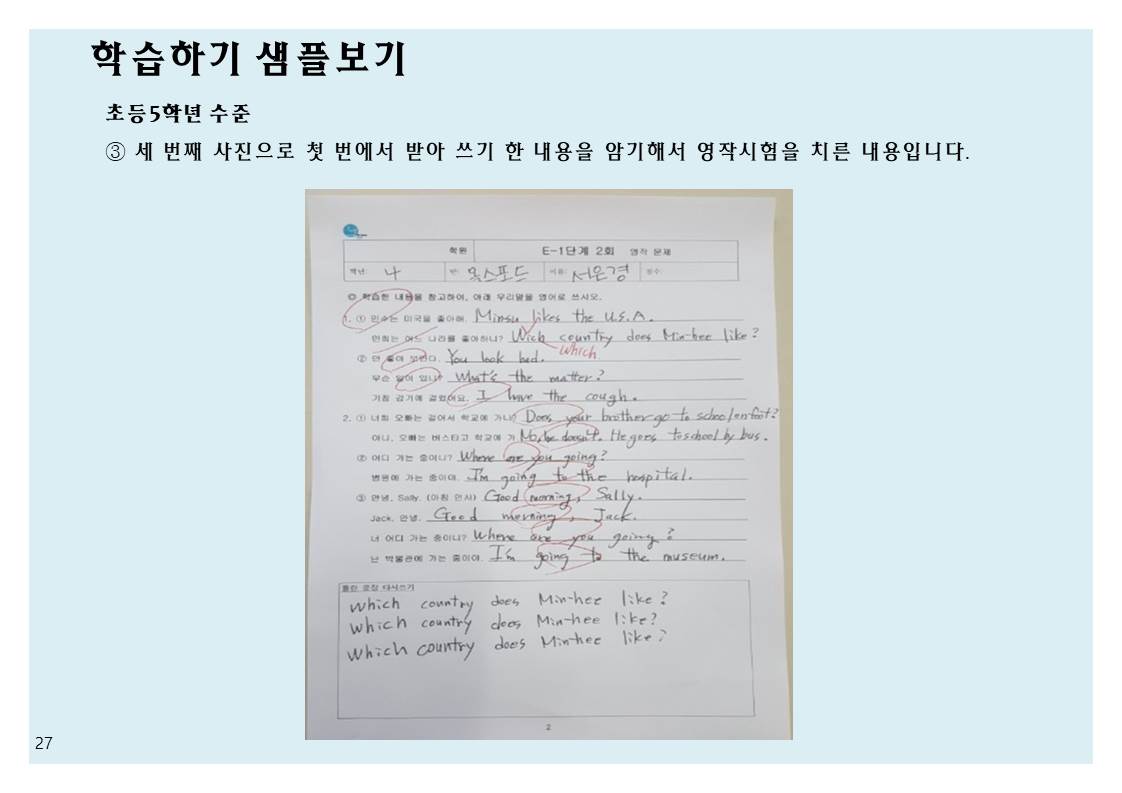 학습하기 샘플보기
초등5학년 수준
③ 세 번째 사진으로 첫 번에서 받아 쓰기 한 내용을 암기해서 영작시험을 치른 내용입니다.
학원 E-1단계 2회 영작 문제
학년: 나 반: 옥스포드 이름: 서은경 점수:
◎ 학습한 내용을 참고하여, 아래 우리말을 영어로 쓰시오.
1. ① 민수는 미국을 좋아해. Minsu likes the U.S.A.
민희는 어느 나라를 좋아하니? Wich country does Min-hee like?
which
② 안 좋아 보인다. You look bad.
무슨 일이 있니? What's the matter?
기침 감기에 걸렸어요. I have the cough.
2. ① 너희 오빠는 걸어서 학교에 가니? Does your brother go to school on foot?
아니, 오빠는 버스타고 학교에 가 No, he doesn't. He goes to school by bus.
② 어디 가는 중이니? Where are you going?
병원에 가는 중이야. I'm going to the hospital.
③ 안녕, Sally. (아침 인사) Good morning, Sally.
Jack, 안녕. Good morning, Jack.
너 어디 가는 중이니? Where are you going?
난 박물관에 가는 중이야. I'm going to the museum.
틀린 문장 다시쓰기
which country does Min-hee like?
which country does Min-hee like?
which country does Min-hee like?
2
27